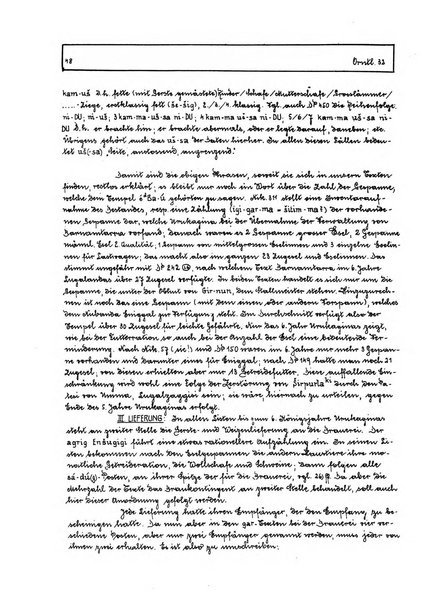 48 Orntl. 32
kam-uš d.h. fette (mit Gerste gemästete) Rinder/Schafe/Mutterschafe/
..... Ziege, erstklassig fett (še-šig), 2./3./4. klassig. Vgl. auch DP 450 die Reihenfolge
ni-DU; ni-uš; 3 kam-ma-uš-sa ni-DU; 4 kam-ma uš-sa ni-DU, 5/6/7 kam-ma uš-sa ni-
DU d.h. er brachte ihm; er brachte abermals, oder er legte darauf, daneben; etc.
Übrigens gehört auch das uš-sa der Daten hierher. In allen diesen Fällen bedeu-
tet uš(-sa) "Seite, anstossend, angrenzend."
Damit sind die obigen Phrasen, soweit sie sich in unsern Texten
finden, restlos erklärt; es bleibt nur noch ein Wort über die Zahl der Gespanne,
welche dem Tempel Ba-Ú gehörten zu sagen. Nik. stellt eine Inventarauf-
nahme des Bestandes, resp eine Zählung (igi-gar-ma = šitim-ma?) der vorhande-
nen Gespanne dar, welche Urukagina bei der Übernahme der Verwaltung von
Barnamtarra vorfand; danach waren es 2 Gespanne grosser Esel, 2 Gespanne
männl. Esel 2. Qualität, 1 Gespann von mittelgrossen Eselinnen und 3 einzelne Eselin-
nen für Lasttragen; das macht also im ganzen 23 Zugesel und Eselinnen. Das
stimmt ungefähr mit DP 242, nach welchem Text Barnamtarra im 6. Jahre
Lugalandas über 27 Zugesel verfügte. In beiden Texten handelt es sich nur um die
Gespanne, die unter der Obhut von Gir-nun, dem Stallmeister stehen. Hinzuzurech-
nen ist noch das eine Gespann (mit dem einen oder andern Vorspann), welches
dem Nubanda Eniggal zur Verfügung steht. Im Durchschnitt verfügt also der
Tempel über 30 Zugesel für leichte Gefährte. Nun das 6. Jahr Urukaginas zeigt,
wie bei der Futterration so auch bei der Anzahl der Esel eine bedeutende Ver-
minderung. Nach Nik. 57 (sic!) und DP 150 waren im 6. Jahre nur mehr 3 Gespan-
ne vorhanden und darunter eines für Eniggal; nach DP hatte man noch 21
Zugesel, von denen erhielten aber nur 13 Getreidefutter. Diese auffallende Ein-
schränkung wird wohl eine Folge der Zerstörung von Sirpurla ki durch den Pa-
tesi von Umma, Lugalzaggisi sein; sie wäre, hiernach zu urteilen, gegen
Ende des 5. Jahres Urukaginas erfolgt.
III LIEFERUNG: In allen Listen bis zum 6. Königsjahre Urukaginas
steht an zweiter Stelle die Gerste- und Weizenlieferung an die Brauerei. Der
agrig Enšugigi führt eine etwas rationellere Aufzählung ein. In seinen Li-
sten bekommen nach den Eselgespannen die andern Haustiere ihre mo-
natliche Getreideration, die Wollschafe und Schweine; dann folgen alle
sá-dú(g)-Posten, an ihrer Spitze der für die Brauerei, vgl. 26 ff. Da aber die
Mehrzahl der Texte das Braukontingent an zweiter Stelle behandelt, soll auch
hier dieser Anordnung gefolgt werden.
Jede Lieferung hatte ihren Empfänger, der den Empfang zu be-
scheinigen hatte. Da nun aber in den gar-Texten bei der Brauerei vier ver-
schiedene Posten, aber nur zwei Empfänger genannt werden, muss jeder von
ihnen zwei erhalten. Es ist also zu umschreiben: